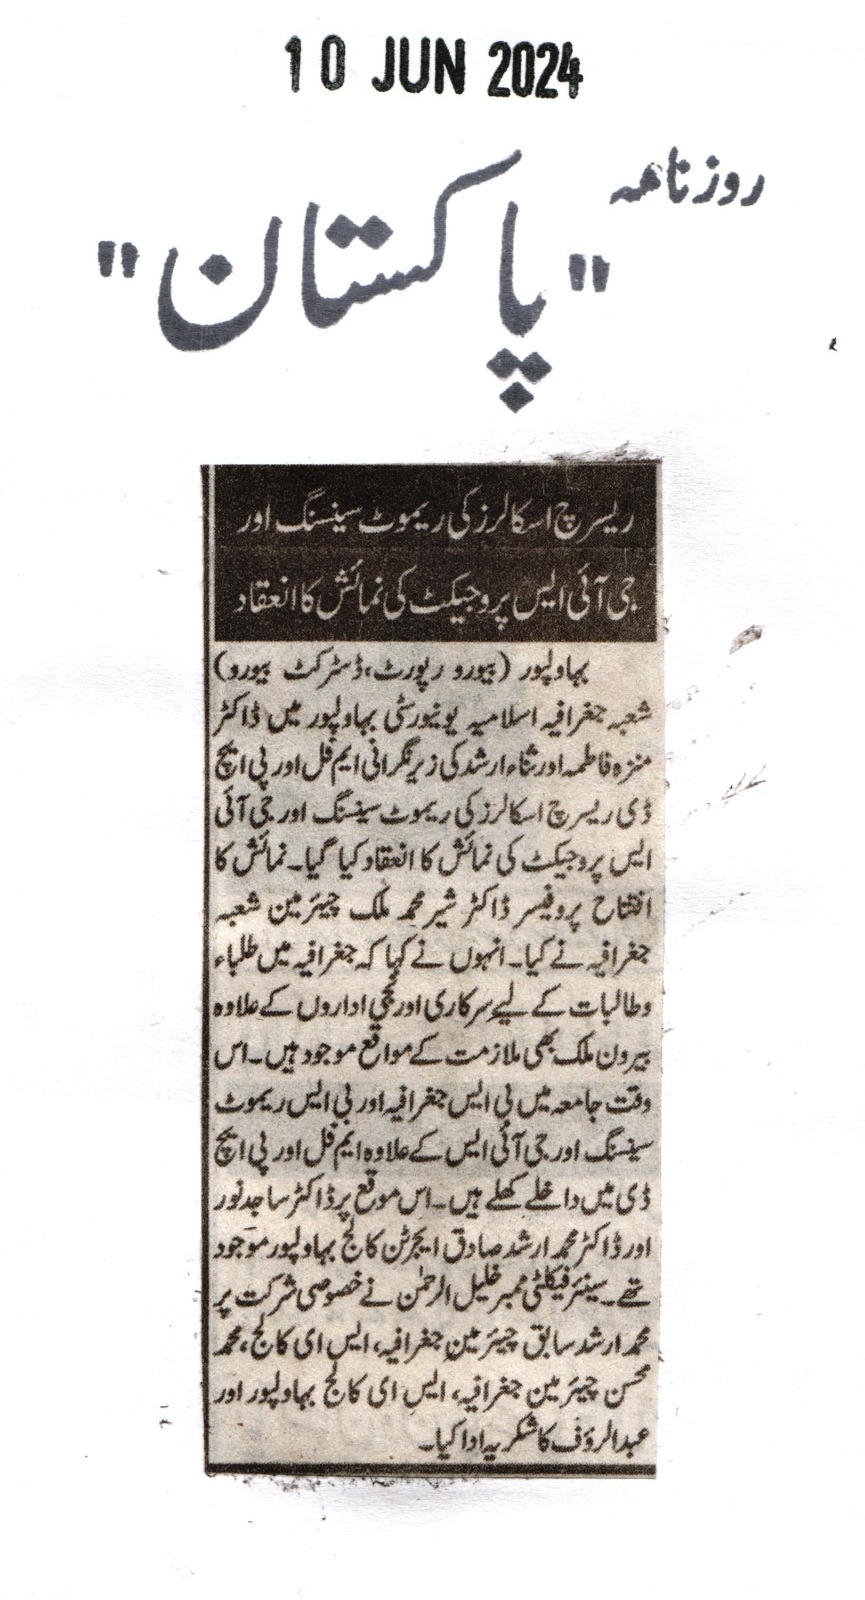 10 JUN 2024
روزنامہ
"پاکستان"
ریسرچ اسکالرز کی ریموٹ سینسنگ اور
جی آئی ایس پروجیکٹ کی نمائش کا انعقاد
بہاولپور (بیورو رپورٹ، ڈسٹرکٹ بیورو)
شعبہ جغرافیہ اسلامیہ یونیورسٹی بہاولپور میں ڈاکٹر
منزہ فاطمہ اور ثناء ارشد کی زیرنگرانی ایم فل اور پی ایچ
ڈی ریسرچ اسکالرز کی ریموٹ سینسنگ اور جی آئی
ایس پروجیکٹ کی نمائش کا انعقاد کیا گیا۔ نمائش کا
افتتاح پروفیسر ڈاکٹر شیر محمد ملک چیئرمین شعبہ
جغرافیہ نے کیا۔ انہوں نے کہا کہ جغرافیہ میں طلباء
وطالبات کے لیے سرکاری اور نجی اداروں کے علاوہ
بیرون ملک بھی ملازمت کے مواقع موجود ہیں۔ اس
وقت جامعہ میں بی ایس جغرافیہ اور بی ایس ریموٹ
سینسنگ اور جی آئی ایس کے علاوہ ایم فل اور پی ایچ
ڈی میں داخلے کھلے ہیں۔ اس موقع پر ڈاکٹر ساجد نور
اور ڈاکٹر محمد ارشد صادق ایجرٹن کالج بہاولپور موجود
تھے۔ سینئر فیکلٹی ممبر خلیل الرحمٰن نے خصوصی شرکت پر
محمد ارشد سابق چیئرمین جغرافیہ، ایس ای کالج، محمد
محسن چیئرمین جغرافیہ، ایس ای کالج بہاولپور اور
عبدالرؤف کا شکریہ ادا کیا۔